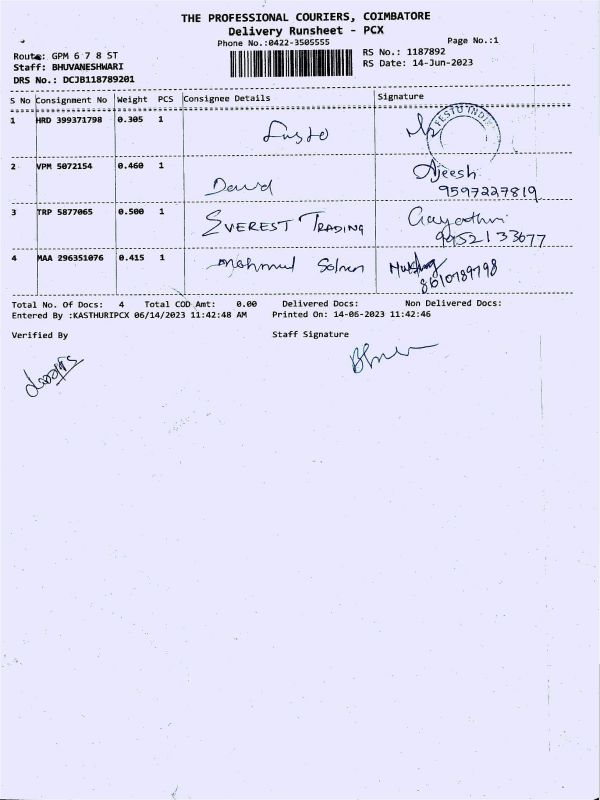 THE PROFESSIONAL COURIERS, COIMBATORE
Delivery Runsheet - PCX
Phone No.:0422-3505555
Page No.:1
Route: GPM 6 7 8 ST
RS No.: 1187892
Staff: BHUVANESHWARI
RS Date: 14-Jun-2023
DRS No.: DCJB118789201
S No Consignment No Weight PCS Consignee Details Signature
1 HRD 399371798 0.305 1
2 VPM 5072154 0.460 1 David Ajeesh
9597227819
3 TRP 5877065 0.500 1 EVEREST TRADING Gayathri
9952133677
4 MAA 296351076 0.415 1
8610789798
Total No. Of Docs: 4 Total COD Amt: 0.00 Delivered Docs: Non Delivered Docs:
Entered By :KASTHURIPCX 06/14/2023 11:42:48 AM Printed On: 14-06-2023 11:42:46
Verified By Staff Signature